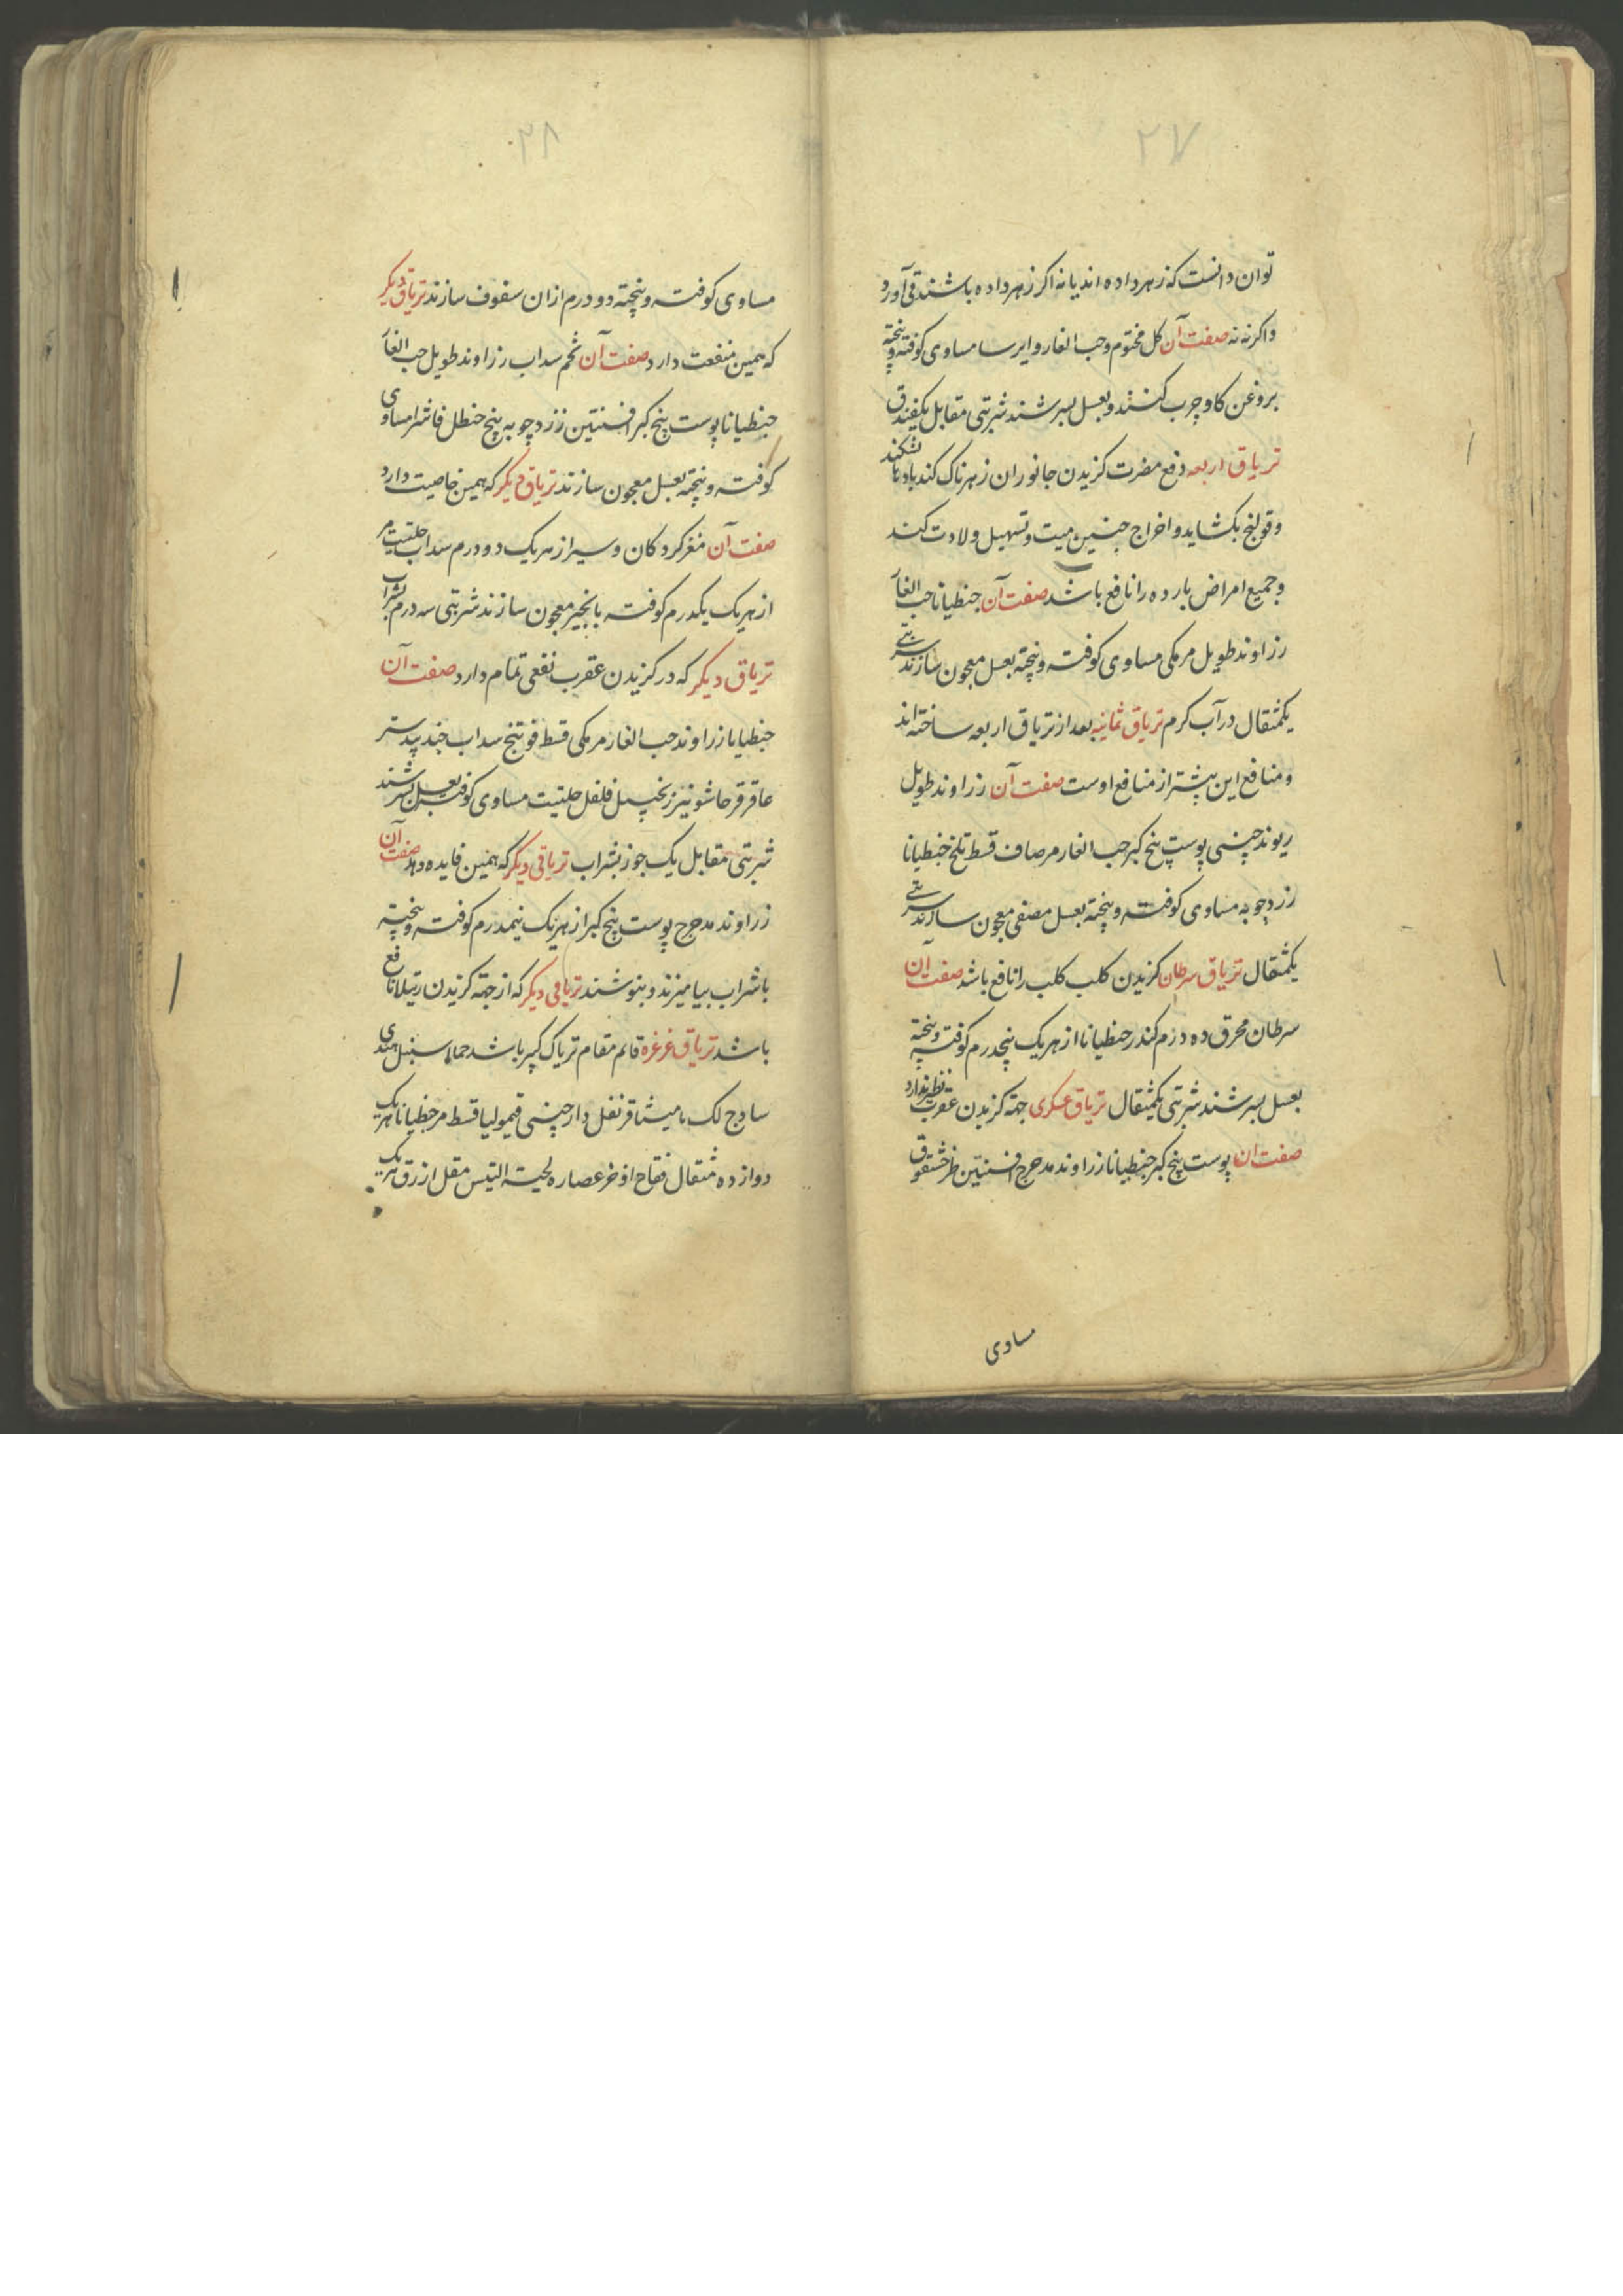 ۲۷
توان دانست که زهر داده اند یا نه اکر زهر داده باشند قی آورد
واکر نه نه صفت آن کل مختوم وحب الغار وایرسا مساوی کوفته وپخته
بروغن کاو چرب کنند وبعسل بسرشند شربتی مقابل یکفندق
تریاق اربعه دفع مضرت کزیدن جانوران زهرناک کند بادها بشکند
وقولنج بکشاید واخراج جنین میت وتسهیل ولادت کند
وجمیع امراض بارده را نافع باشد صفت آن جنطیانا حب الغار
زراوند طویل مرمکی مساوی کوفته وپخته بعسل معجون سازند شربتی
یکمثقال در آب کرم تریاق ثمانیه بعد از تریاق اربعه ساخته اند
ومنافع این بیشتر از منافع اوست صفت آن زراوند طویل
ریوند چینی پوست بیخ کبر حب الغار مرصاف قسط تلخ جنطیانا
زردچوبه مساوی کوفته وپخته بعسل مصفی معجون سازند شربتی
یکمثقال تریاق سرطان کزیدن کلب کلب را نافع باشد صفت آن
سرطان محرق ده درم کندر جنطیانا از هریک پنجدرم کوفته وپخته
بعسل بسرشند شربتی یکمثقال تریاق عسکری جهة کزیدن عقرب نظیر ندارد
صفت ان پوست بیخ کبر جنطیانا زراوند مدحرج افسنتین طرخشقوق
مساوی
۲۸
مساوی کوفته وپخته دو درم ازان سفوف سازند تریاق دیکر
که همین منفعت دارد صفت آن تخم سداب زراوند طویل حب الغار
جنطیانا پوست بیخ کبر افسنتین زردچوبه بیخ حنظل فاشرا مساوی
کوفته وپخته بعسل معجون سازند تریاق دیکر که همین خاصیت دارد
صفت آن مغز کردکان وسیر از هریک دو درم سداب حلتیت مر
از هریک یکدرم کوفته بانجیر معجون سازند شربتی سه درم بشراب
تریاق دیکر که در کزیدن عقرب نفعی تمام دارد صفت آن
جنطیانا زراوند حب الغار مرمکی قسط فوتنج سداب جندبیدستر
عاقرقرحا شونیز زنجبیل فلفل حلتیت مساوی کوفته بعسل بسرشند
شربتی مقابل یک جوز بشراب تریاقی دیکر که همین فایده دهد صفت آن
زراوند مدحرج پوست بیخ کبر از هریک نیمدرم کوفته وپخته
باشراب بیامیزند وبنوشند تریاقی دیکر که از جهة کزیدن رتیلا نافع
باشد تریاق غرغره قائم مقام تریاک کبیر باشد حماما سنبل هندی
سادج لک مامیثا قرنفل دارچینی قیمولیا قسط مر جنطیانا هریک
دوازده مثقال فقاح اذخر عصاره لحیة التیس مقل ازرق هریک